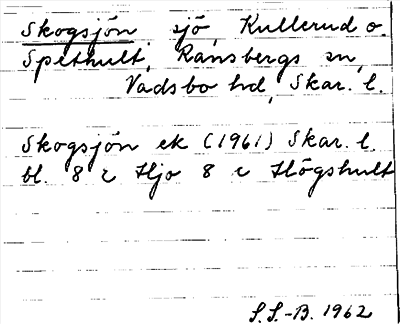 Skogsjön, sjö, Kullerud o.
Spethult, Ransbergs sn,
Vadsbo hd, Skar. l.
Skogsjön ek (1961) Skar. l.
bl. 8 Hjo 8 Högshult
S.S.-B. 1962